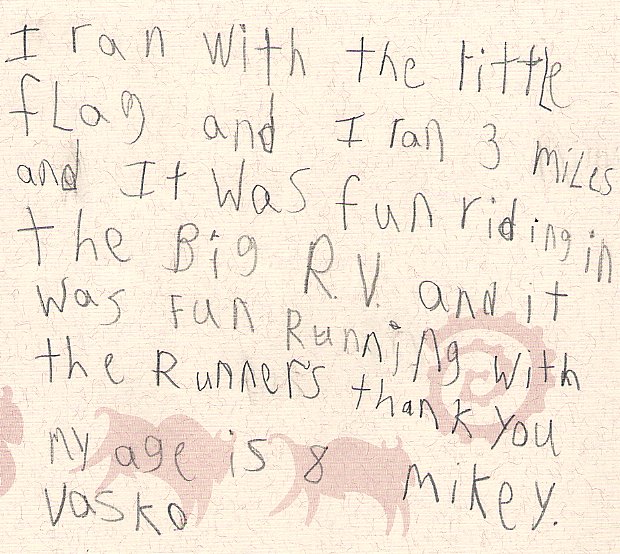 I ran with the little
fLag and I ran 3 miLes
and It was fun riding in
the Big R.V. and it
was Fun Running with
the Runners thank you
my age is 8 mikey.
vasko